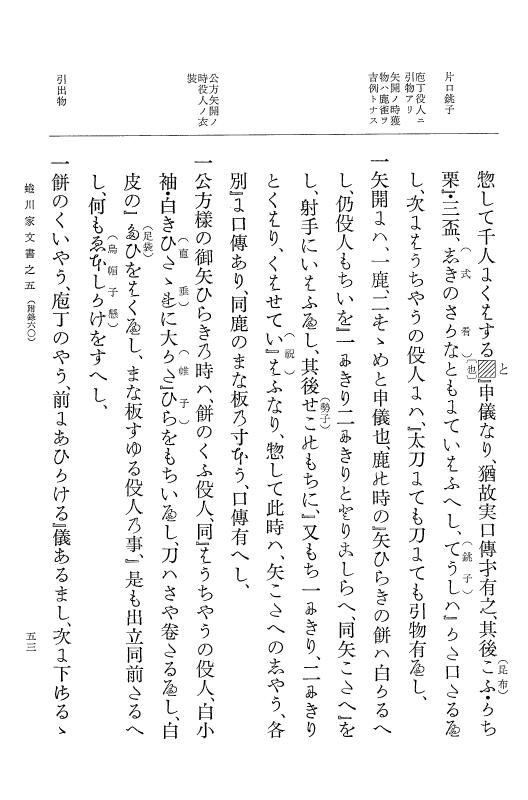 片口銚子
庖丁役人ニ
引物アリ
矢開ノ時獲
物ハ鹿雀ヲ
吉例トナス
公方矢開ノ
時役人ノ衣
装
引出物
惣して千人にくはする▨(と)『(也)申儀なり、猶故実口傳才有之、其後こふ(昆布)・かち
栗『・三盃、しきのさかな(式肴)ともまていはふへし、てうし(銚子)ハ』かた口たるへ
し、次にはうちやうの役人にハ、『太刀にても刀にても引物有へし、
一矢開にハ、一鹿、二すゝめと申儀也、鹿の時の『矢ひらきの餅ハ白かるへ
し、仍役人もちいを『一にきり二にきりととりこしらへ、同矢こたへ』を
し、射手にいはふへし、其後せこ(勢子)のもちに、『又もち一にきり、二にきり
とくはり、くはせてい(祝)』はふなり、惣して此時ハ、矢こたへのしやう、各
別『に口傳あり、同鹿のまな板の寸ほう、口傳有へし、
一公方様の御矢ひらきの時ハ、餅のくふ役人、同『はうちやうの役人、白小
袖・白きひたゝれ(直垂)に大かた(帷子)』ひらをもちいへし、刀ハさや巻たるへし、白
皮の『たひ(足袋)をはくへし、まな板すゆる役人の事、『是も出立同前たるへ
し、何もゑほしかけ(烏帽子懸)をすへし、
一餅のくいやう、庖丁のやう、前にあひかける『儀あるまし、次に下はるゝ
蜷川家文書之五(附録六〇)
五三